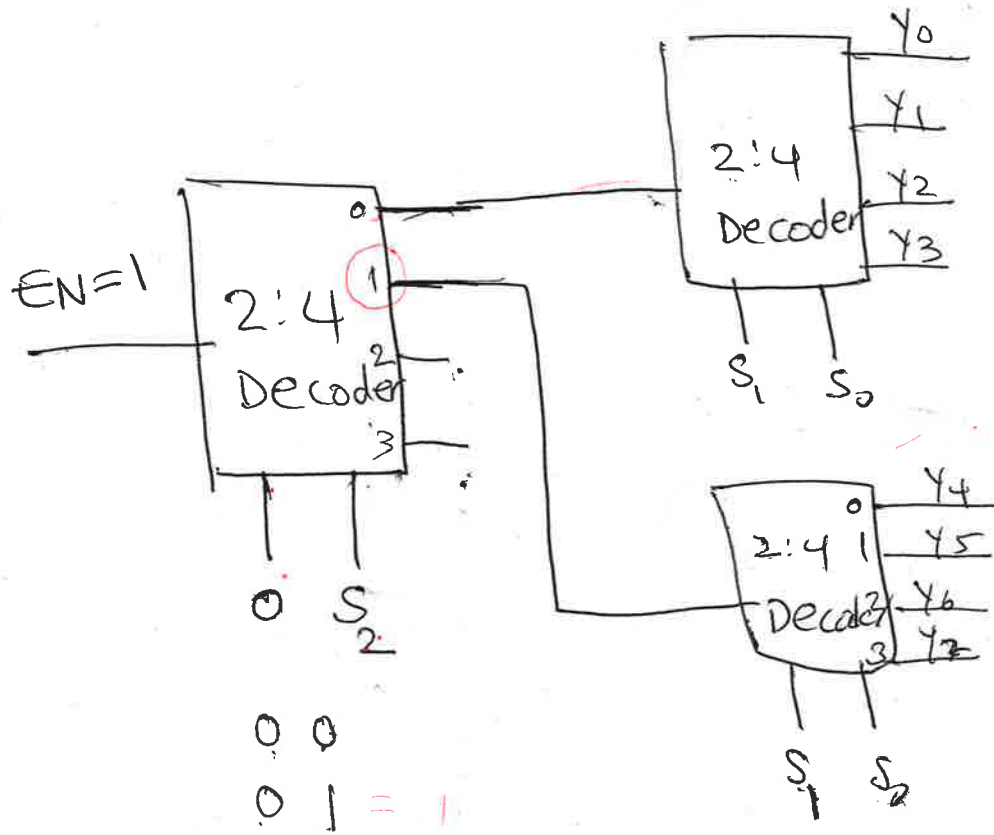 EN=1
2:4
Decoder
0
1
2
3
0 S2
0 0
0 1 = 1
2:4
Decoder
Y0
Y1
Y2
Y3
S1 S0
2:4
Decoder
0
1
2
3
Y4
Y5
Y6
Y7
S1 S0